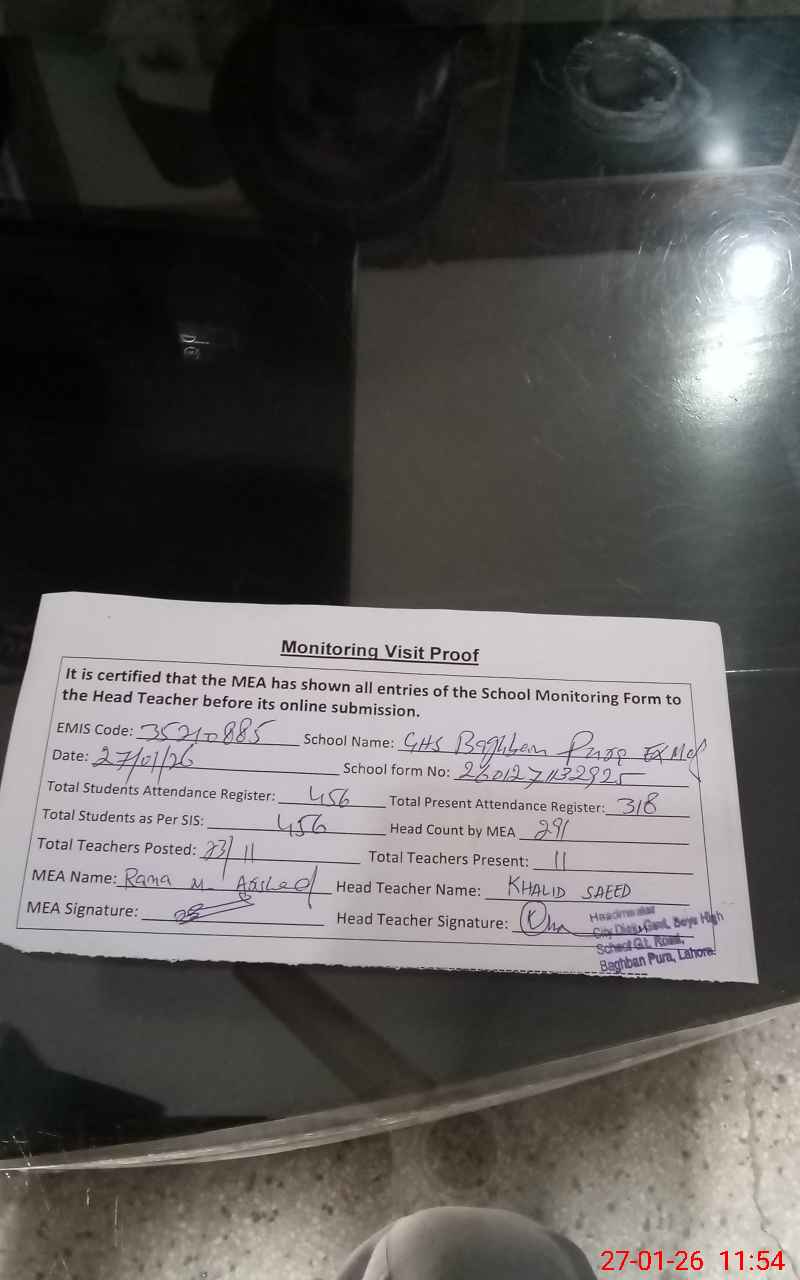 Monitoring Visit Proof
It is certified that the MEA has shown all entries of the School Monitoring Form to
the Head Teacher before its online submission.
EMIS Code: 35210885 School Name: GHS Baghban Pura
Date: 27/01/26 School form No:
Total Students Attendance Register: 456 Total Present Attendance Register: 318
Total Students as Per SIS: 456 Head Count by MEA 291
Total Teachers Posted: 23/11 Total Teachers Present: 11
MEA Name: Rana M. Head Teacher Name: KHALID SAEED
MEA Signature: Head Teacher Signature:
Headmaster
City Distt. Govt. Boys High
School G.T. Road,
Baghban Pura, Lahore.
27-01-26 11:54